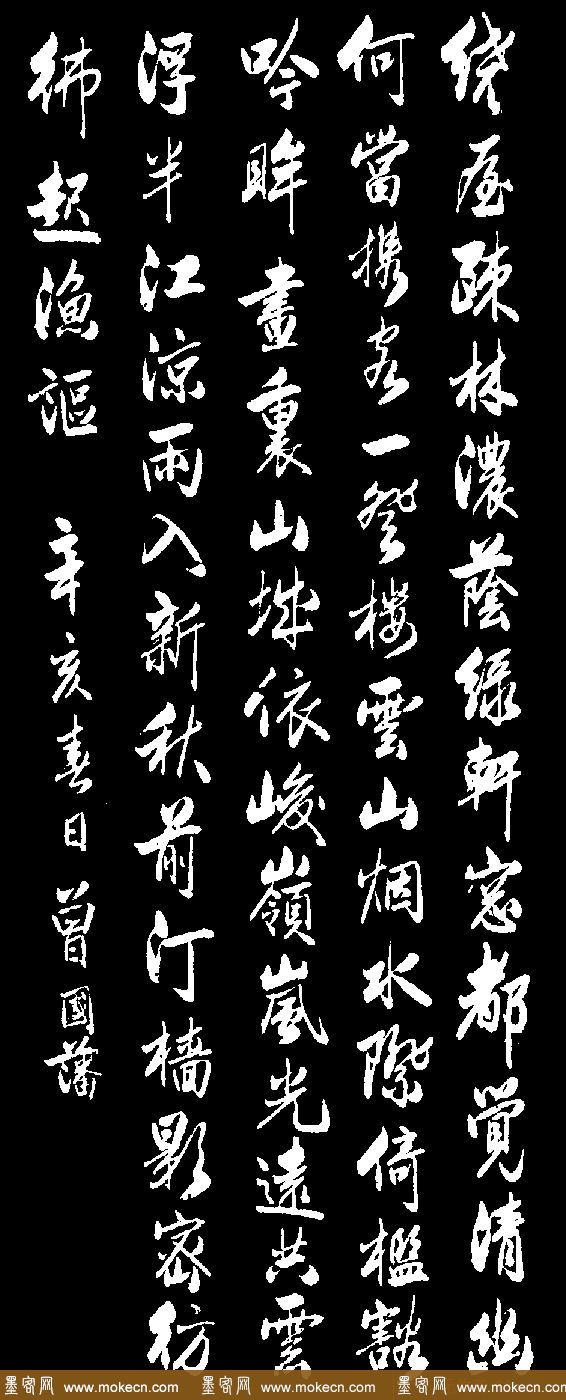 繞屋疎林濃蔭綠軒窓都覺清幽
何當攜客一登樓雲山烟水際倚檻豁
吟眸畫裏山城依峻嶺嵐光遠共雲
浮半江涼雨入新秋前汀檣影密彷
彿起漁謳
辛亥春日曾國藩
墨客网 www.mokecn.com 墨客网 www.mokecn.com 墨客网 www.mokecn.com 墨客网 www.mokecn.com